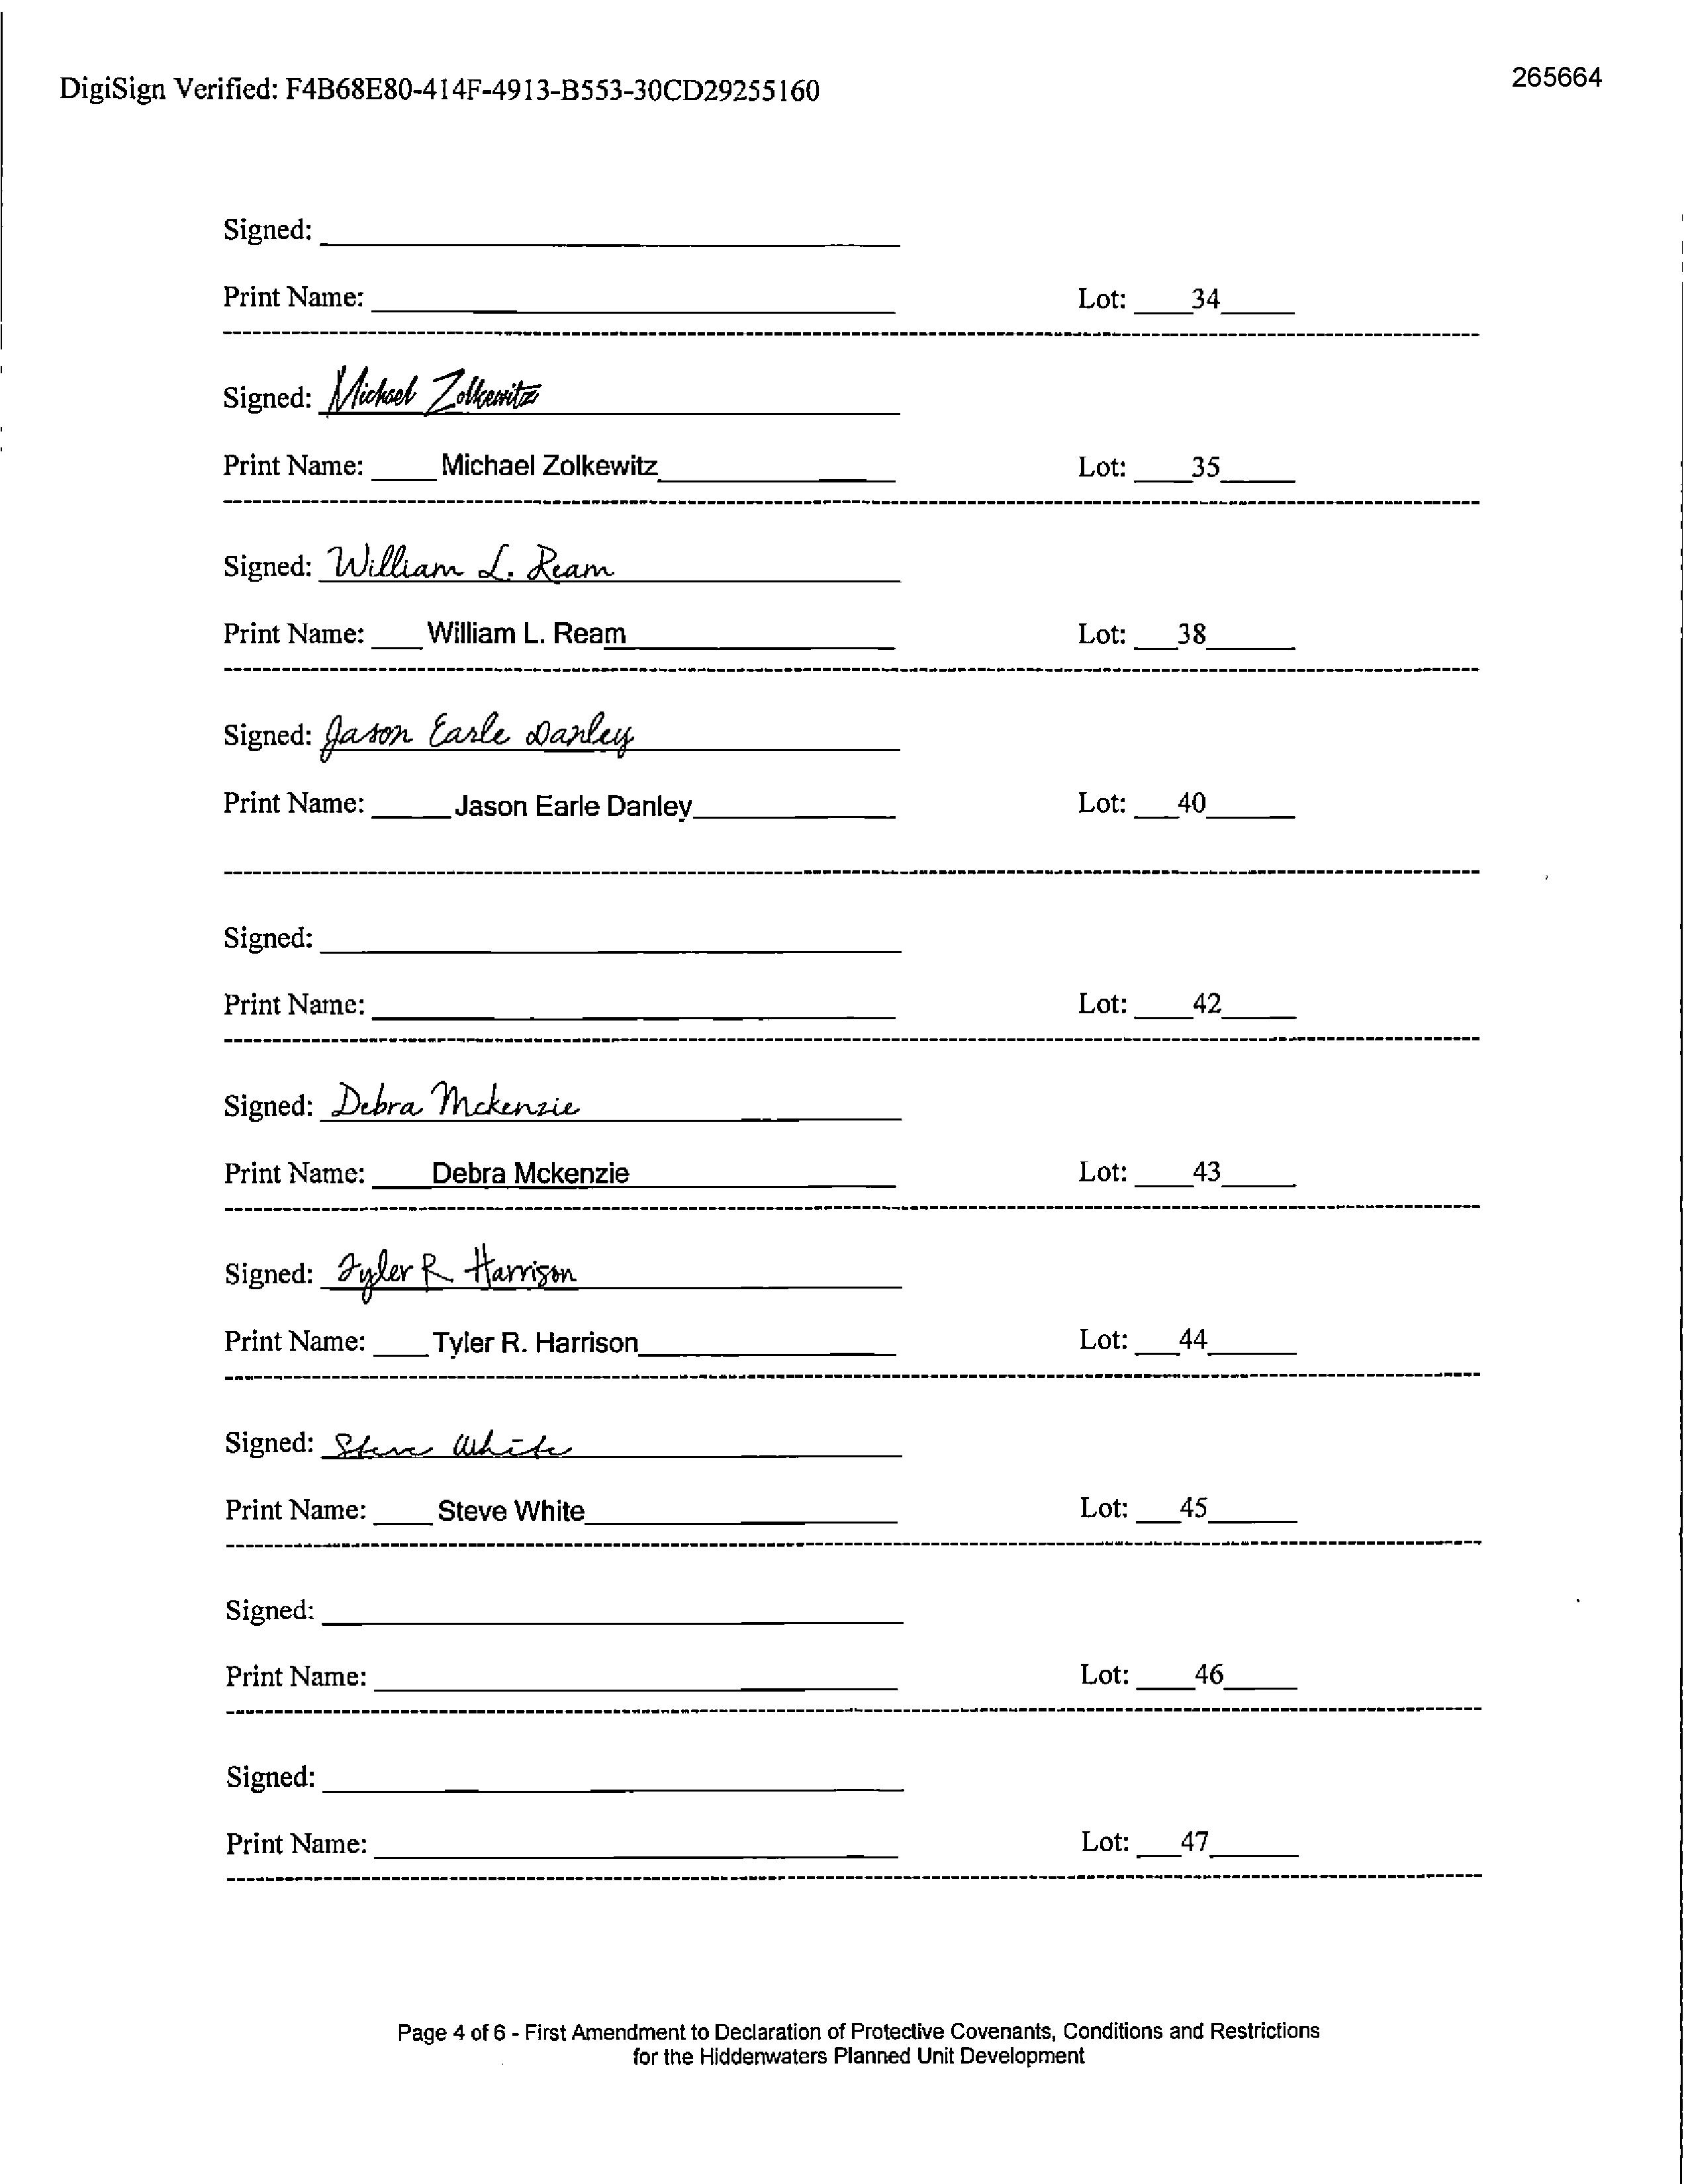 DigiSign Verified: F4B68E80-414F-4913-B553-30CD29255160
265664
Signed:
Print Name: Lot: 34
Signed: Michael Zolkewitz
Print Name: Michael Zolkewitz Lot: 35
Signed: William L. Ream
Print Name: William L. Ream Lot: 38
Signed: Jason Earle Danley
Print Name: Jason Earle Danley Lot: 40
Signed:
Print Name: Lot: 42
Signed: Debra Mckenzie
Print Name: Debra Mckenzie Lot: 43
Signed: Tyler R Harrison
Print Name: Tyler R. Harrison Lot: 44
Signed: Steve White
Print Name: Steve White Lot: 45
Signed:
Print Name: Lot: 46
Signed:
Print Name: Lot: 47
Page 4 of 6 - First Amendment to Declaration of Protective Covenants, Conditions and Restrictions
for the Hiddenwaters Planned Unit Development